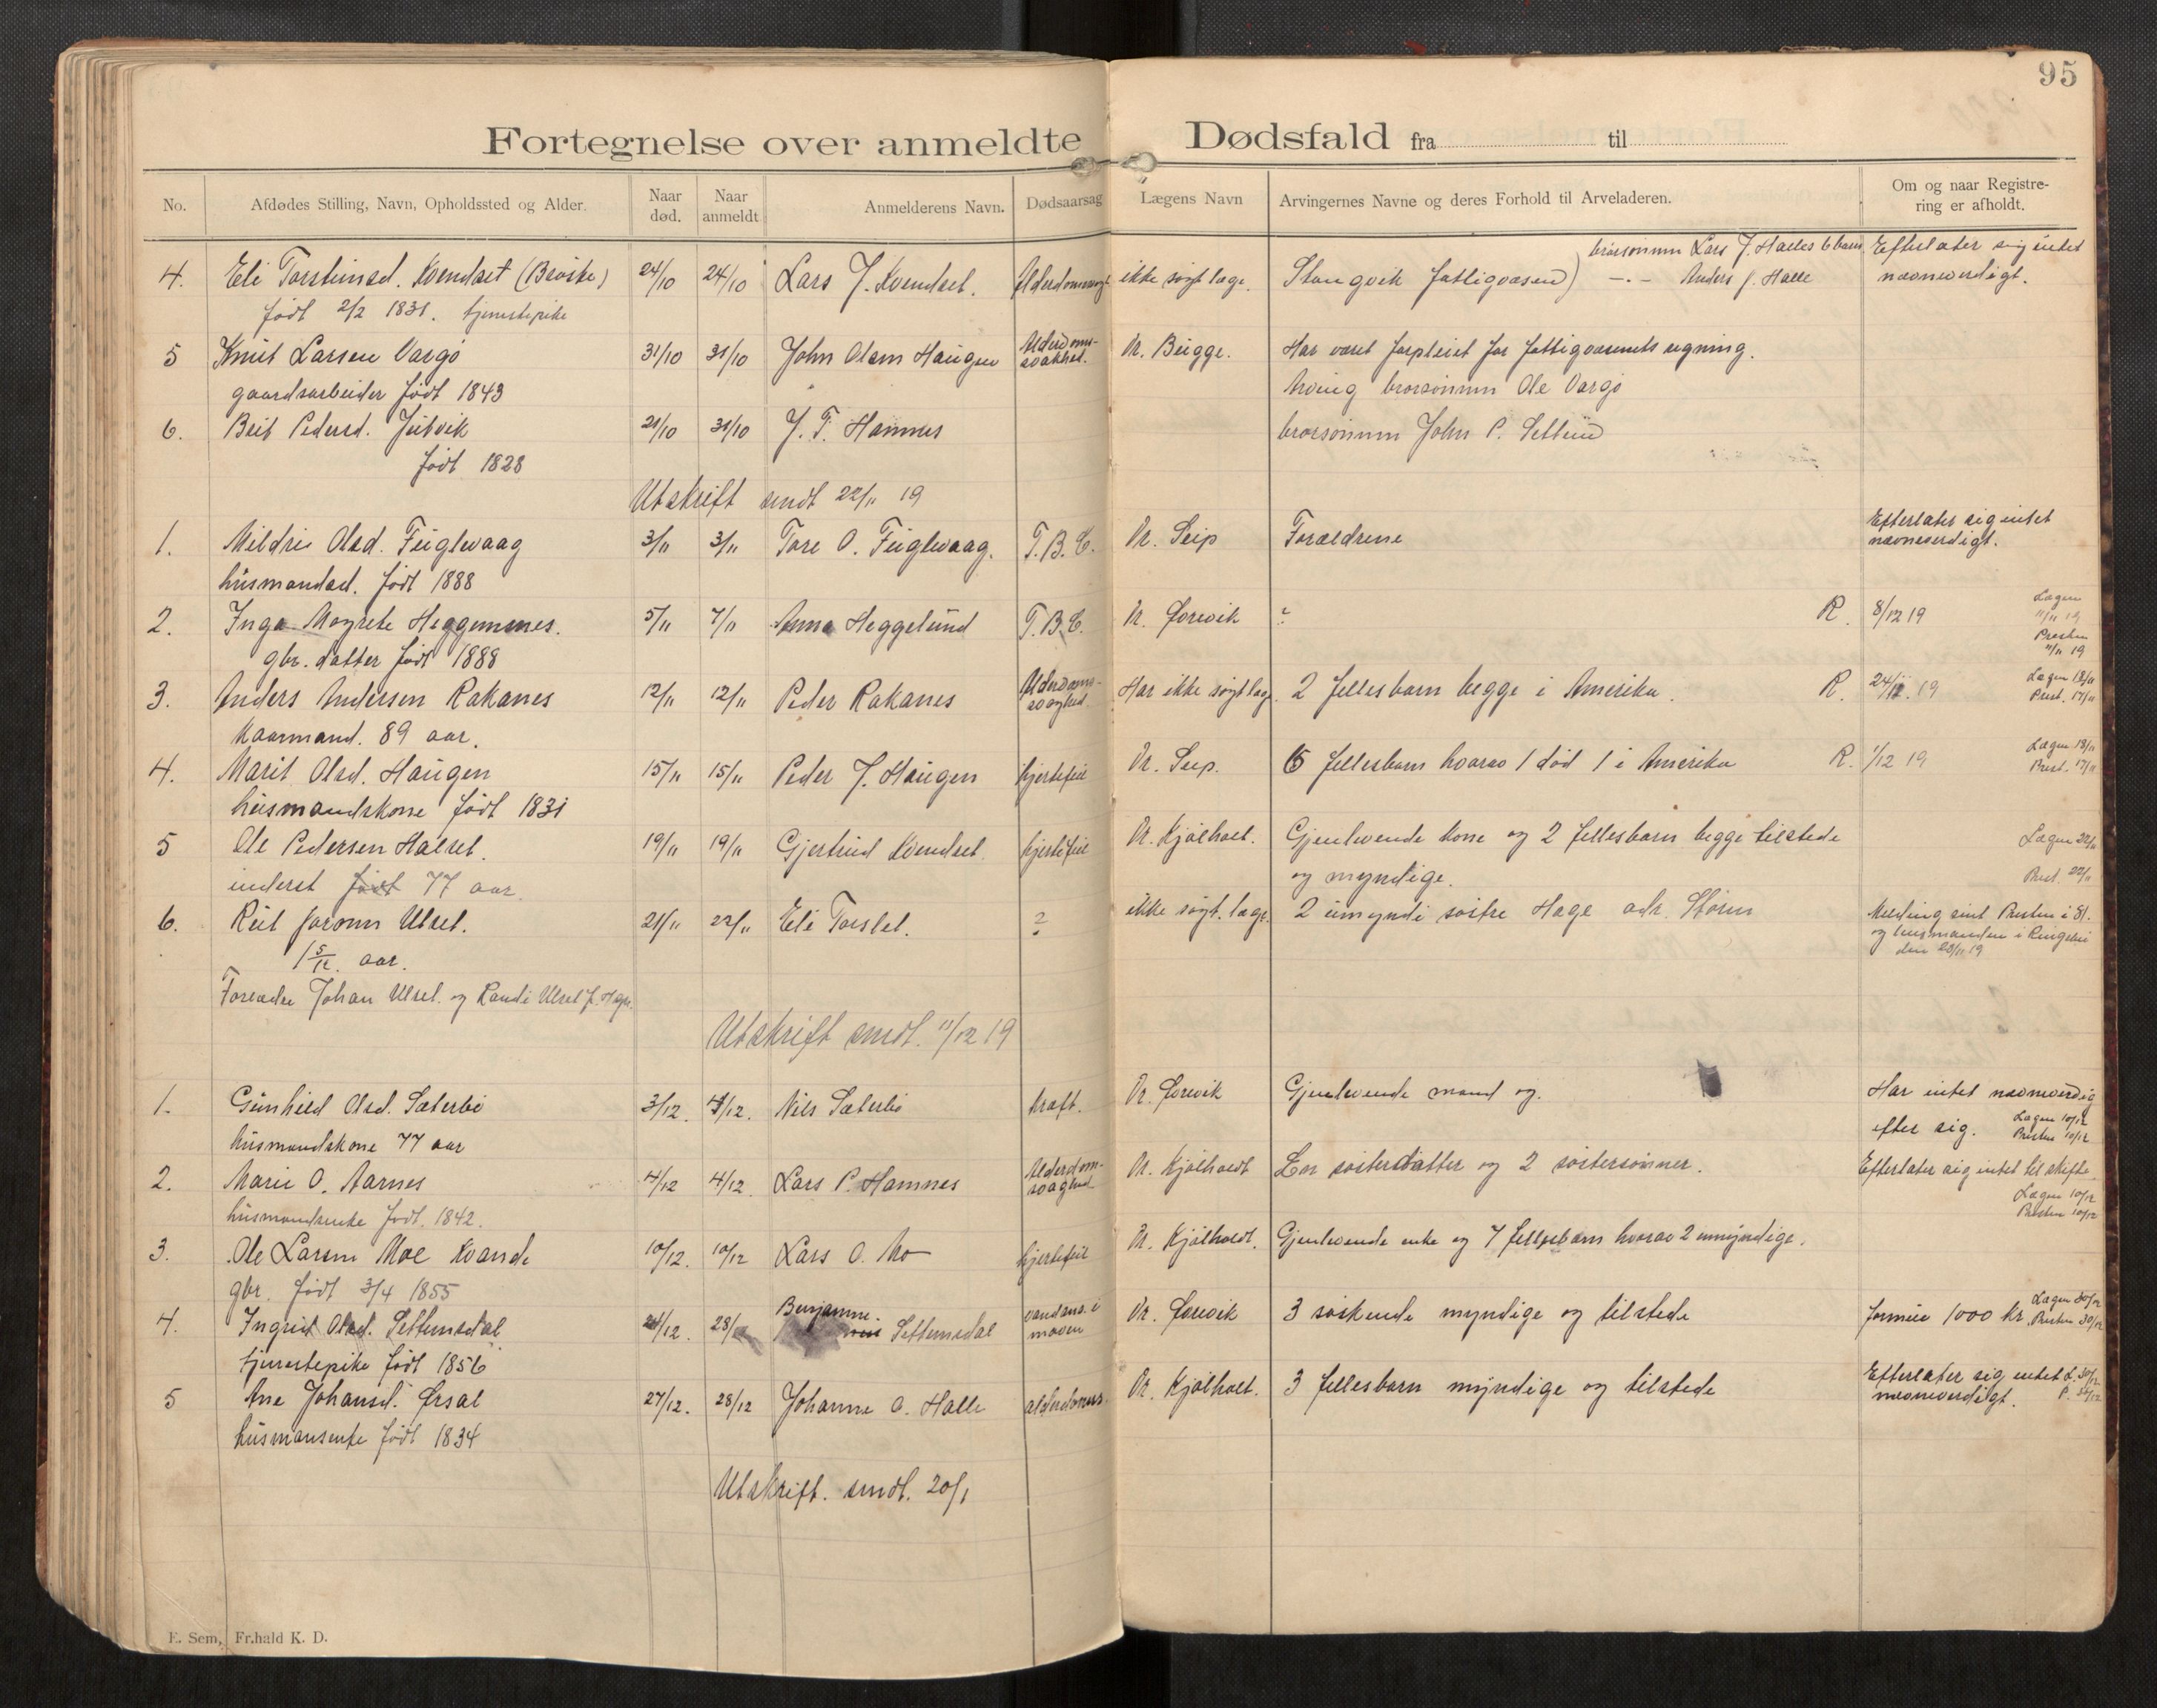 95
Fortegnelse over anmeldte Dødsfald fra til
No. Afdødes Stilling, Navn, Opholdssted og Alder. Naar død. Naar anmeldt Anmelderens Navn. Dødsaarsag Lægens Navn Arvingernes Navne og deres Forhold til Arveladeren. Om og naar Registrering er afholdt.
brorsønnen Lars J. Halles 6 barn Efterlater sig intet
4. Eli Torsteinsd. Kvendset (Brøske) 24/10 24/10 Lars J. Kvendset. ikke søgt læge. Stangvik fattigvæsen) -"- Anders J. Halle nævneverdigt.
født 2/2 1831. tjenestepike
5 Knut Larsen Vargø 31/10 31/10 John Olsen Haugen Alderdoms-svakhet. Dr. Bugge. Har været forpleiet for fattigvæsenets regning.
gaardsarbeider født 1843 Arving brorsønnen Ole Vargø
6. Brit Pedersd. Jutvik 21/10 31/10 J. T. Hamnes brorsønnen John P. Settem
født 1828
Utskrift sendt 22/11 19
1. Mildri Olsd. Fuglevaag 3/11 3/11 Tore O. Fuglevaag. T.B.C. Dr. Seip Forældrene Efterlater sig intet nævneverdigt.
husmandsd. født 1888
2. Inga Magrete Heggemsnes. 5/11 7/11 Anna Heggelund T.B.C. Dr. Sorevik ? R. 8/12 19 Lægen 11/11 19 Presten 11/11 19
gbr. datter født 1888
3. Anders Andersen Rakanes 12/11 12/11 Peder Rakanes Alderdoms-svaghed Har ikke søgt læge. 2 fellesbarn begge i Amerika. R. 24/11. 19 Lægen 18/11 Prest. 17/11
Kaarmand. 89 aar.
4. Marit Olsd. Haugen 15/11 15/11 Peder J. Haugen hjertefeil Dr. Seip. 6 fellesbarn hvorav 1 død 1 i Amerika R. 1/12 19 Lægen 18/11 Prest. 17/11
husmandskone født 1831
5 Ole Pedersen Halset. 19/11 19/11 Gjertrud Kvendset. hjertefeil Dr. Kjølholt. Gjenlevende kone og 2 fellesbarn begge tilstede Lægen 22/11
inderst født 77 aar. og myndige. Prest. 22/11
6. Rut Jorunn Ulset. 21/11 22/11 Eli Torslet. ? ikke søgt. læge. 2 umyndi søstre Hage adr. Støren Melding sent Presten i St.
1 5/12. aar. og lensmanden i Ringebu den 28/11 19
Forældre Johan Ulset. og Randi Ulset f. Hage.
Utskrift sendt. 11/12 19
1. Gunhild Olsd. Sæterbø 3/12. 4/12. Nils Sæterbø kræft. Dr. Sorevik Gjenlevende mand og. Har intet nævneverdig
husmandskone 77 aar efter sig. Lægen 10/12 Presten 10/12
2. Marie O. Aarnes 4/12 4/12. Lars P. Hamnes Alderdom-svaghed Dr. Kjølholdt En søsterdatter og 2 søstersønner. Efterlater sig intet til skifte.
husmandsenke født. 1842. Lægen 10/12 Presten 10/12
3. Ole Larsen Moe Kvande 10/12. 10/12 Lars O. Mo hjertefeil Dr. Kjølholdt. Gjenlevende enke og 7 fellesbarn hvorav 2 umyndige.
gbr. født 3/4 1855
4. Ingrid Olsd. Settemsdal 28/ Benjamine. Settemsdal i maven Dr. Sorevik 3 søskende myndige og tilstede formue 1000 kr. Lægen 30/12 Presten 30/12
tjenestepike født 1856
5 Ane Johansd. Ørsal 27/12. 28/12 Johanne O. Halle alderdoms. Dr. Kjølholt. 3 fellesbarn myndige og tilstede Efterlater sig intet nævneverdigt.
husmansenke født 1834
Utskrift. sendt. 20/1
E. Sem, Fr.hald K. D.